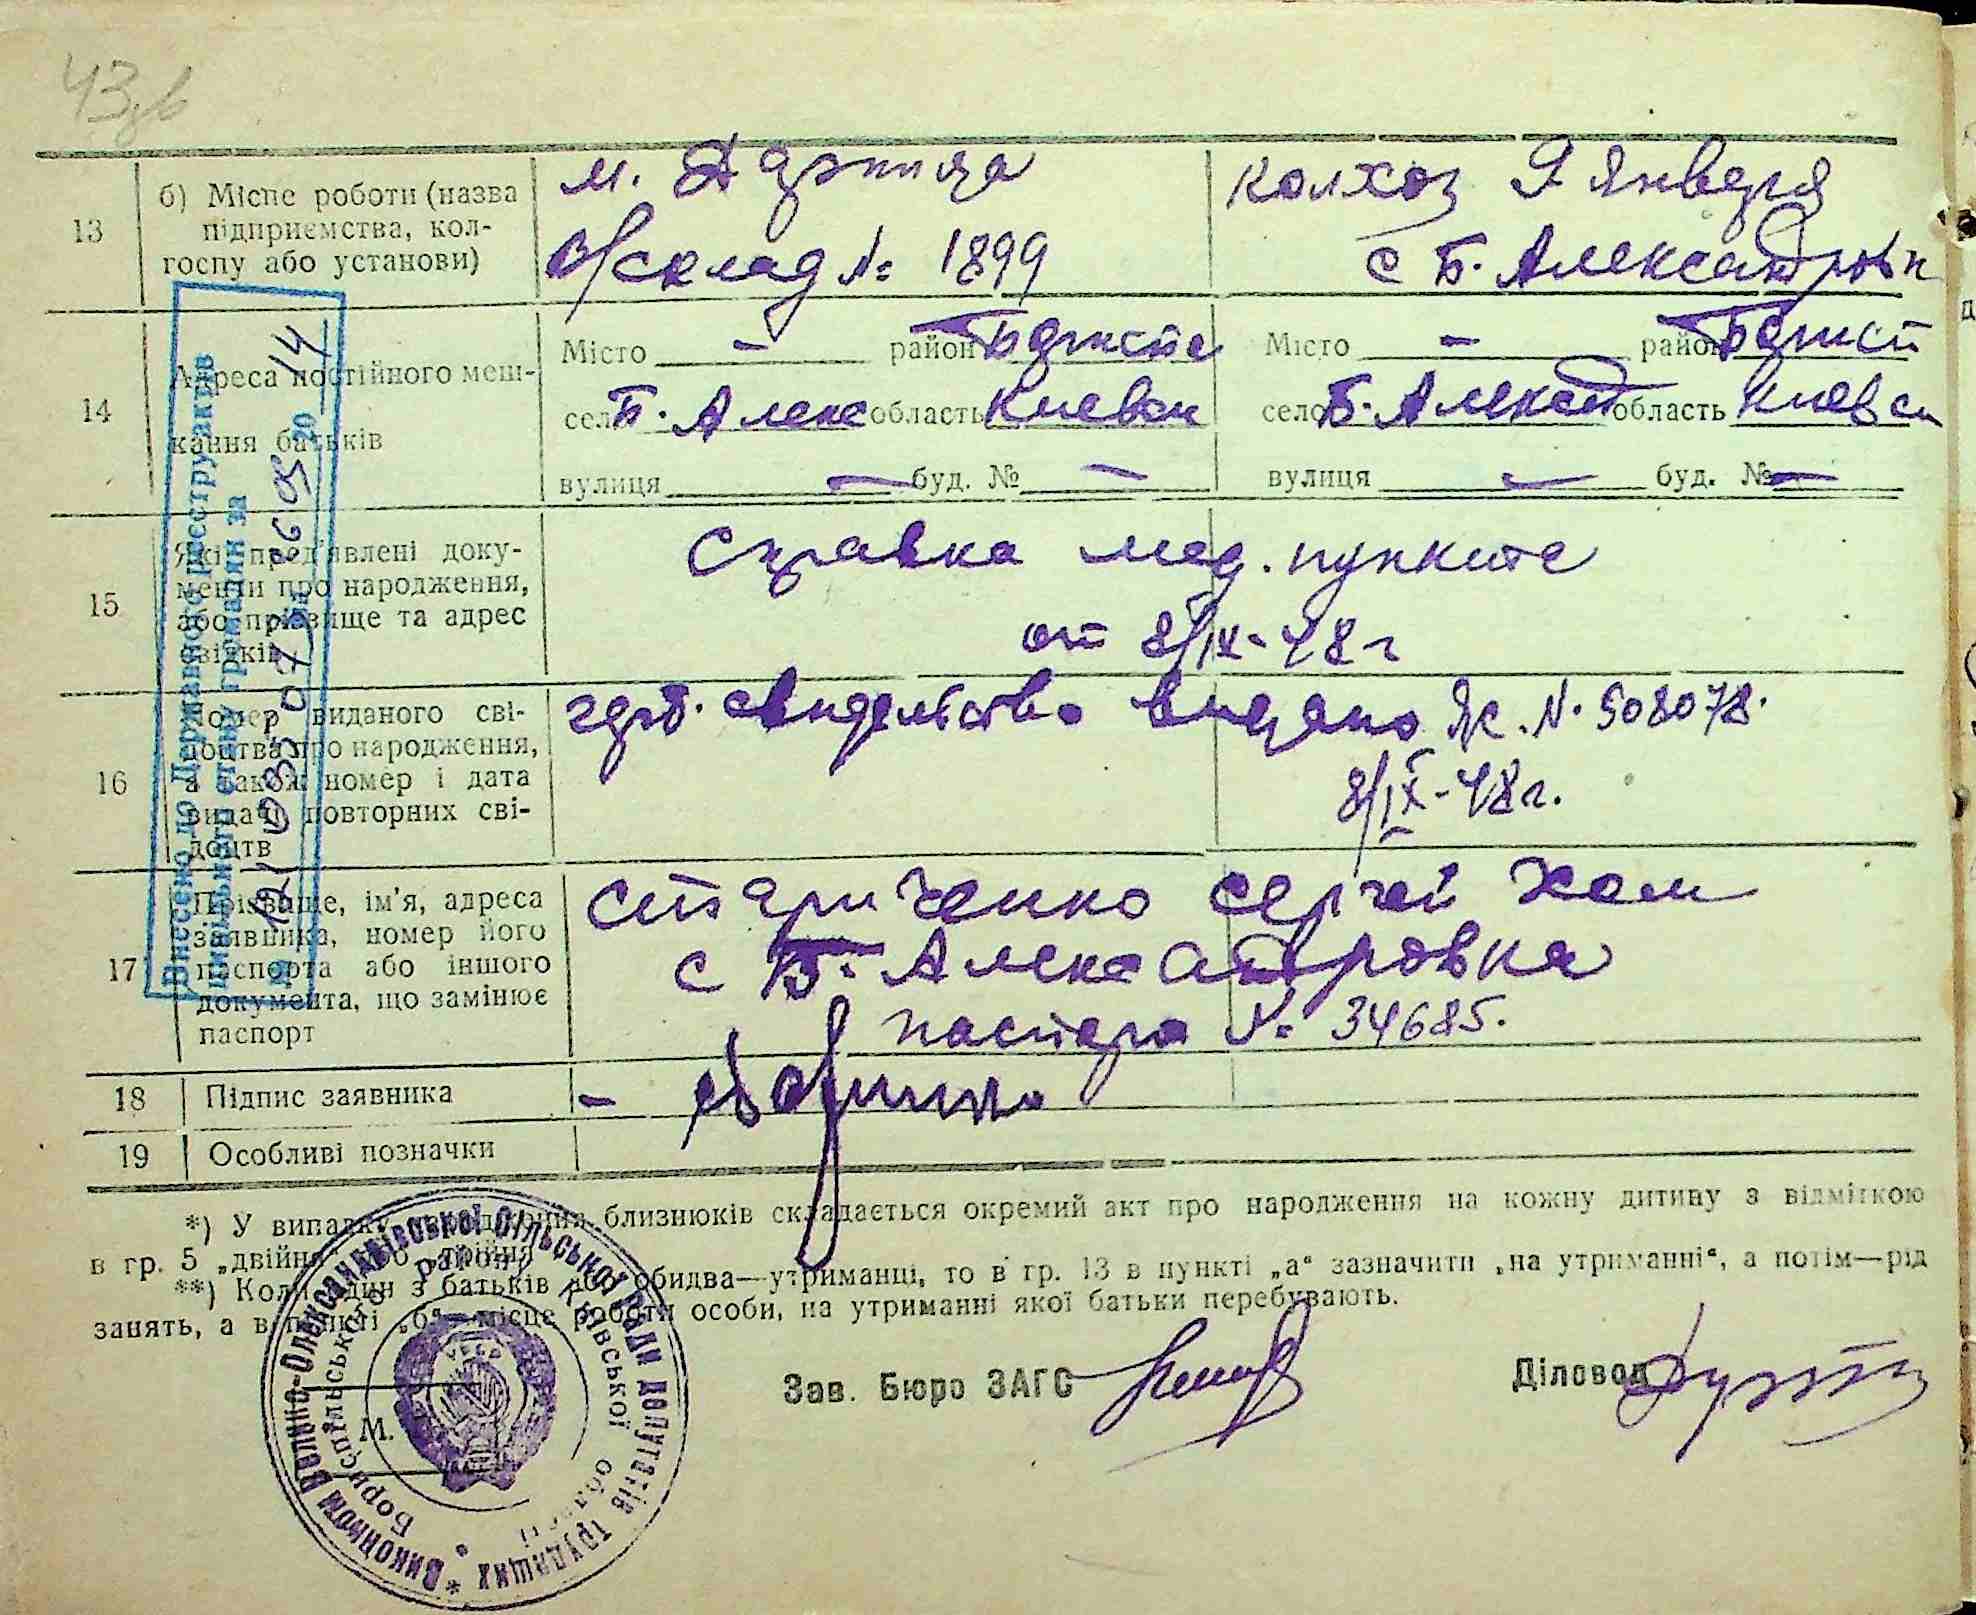 43зв
13
б) Місце роботи (назва
підприємства, кол-
госпу або установи)
м. Дарница
в/склад №: 1899
колхоз 9 Января
с Б. Александровк
14
Адреса постійного меш-
кання батьків
Місто — район
село Б. Алекс область Киевск
вулиця — буд. № —
Місто — район
село Б. Александ область Киевск
вулиця — буд. № —
15
Які пред'явлені доку-
менти про народження,
або прізвище та адрес
свідків
Справка мед. пункта
от 8/IX-48 г
16
Номер виданого сві-
доцтва про народження,
а також номер і дата
видачі повторних сві-
доцтв
свидельство выдано ЯС. N. 508078.
8/IX-48г.
17
Прізвище, ім'я, адреса
заявника, номер його
паспорта або іншого
документа, що замінює
паспорт
Стариченко Сергей Хом
с Б. Александровка
паспорт №: 34685.
18
Підпис заявника
19
Особливі позначки
Внесено до Державного реєстру актів
цивільного стану громадян за
20 14
*) У випадку народження близнюків складається окремий акт про народження на кожну дитину з відміткою
в гр. 5 „двійня“ або „трійня“
**) Коли один з батьків або обидва—утриманці, то в гр. 13 в пункті „а“ зазначити „на утриманні“, а потім—рід
занять, а в пункті „б“—місце роботи особи, на утриманні якої батьки перебувають.
Зав. Бюро ЗАГС
Діловод
М.
* Виконком Велико-Олександрівської сільської Ради депутатів трудящих
Бориспільського району Київської області
УРСР